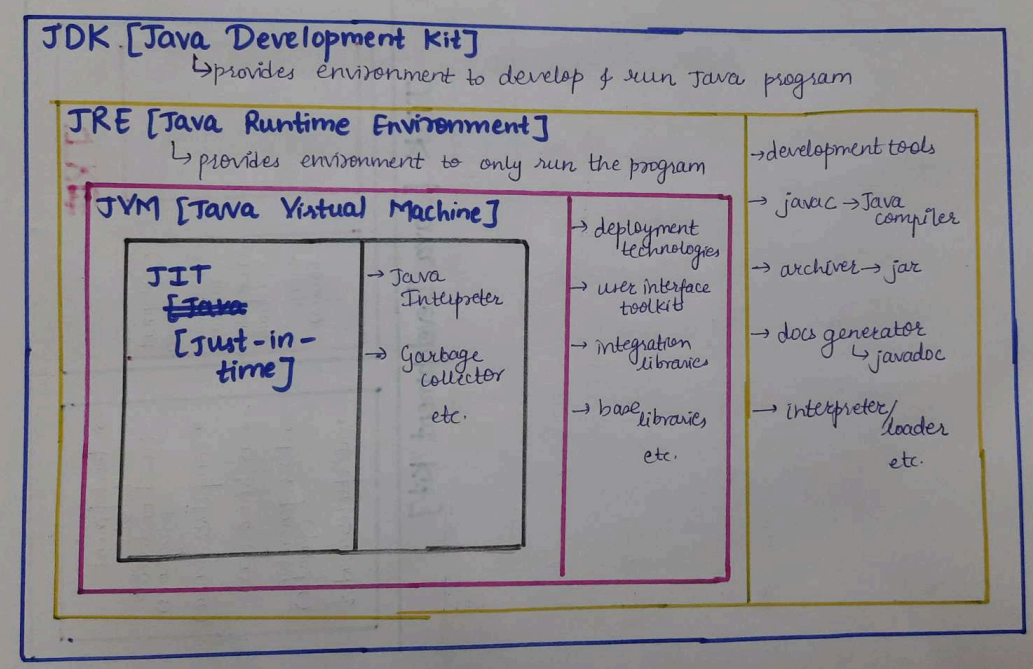 JDK [Java Development Kit]
↳provides environment to develop & run Java program
JRE [Java Runtime Environment]
↳ provides environment to only run the program
JVM [Java Virtual Machine]
JIT
[Java
[Just-in-
time]
→ Java
Interpreter
→ Garbage
collector
etc.
→ deployment
technologies
→ user interface
toolkit
→ integration
libraries
→ base
libraries
etc.
→development tools
→ javac → Java
compiler
→ archiver → jar
→ docs generator
↳ javadoc
→ interpreter/
loader
etc.